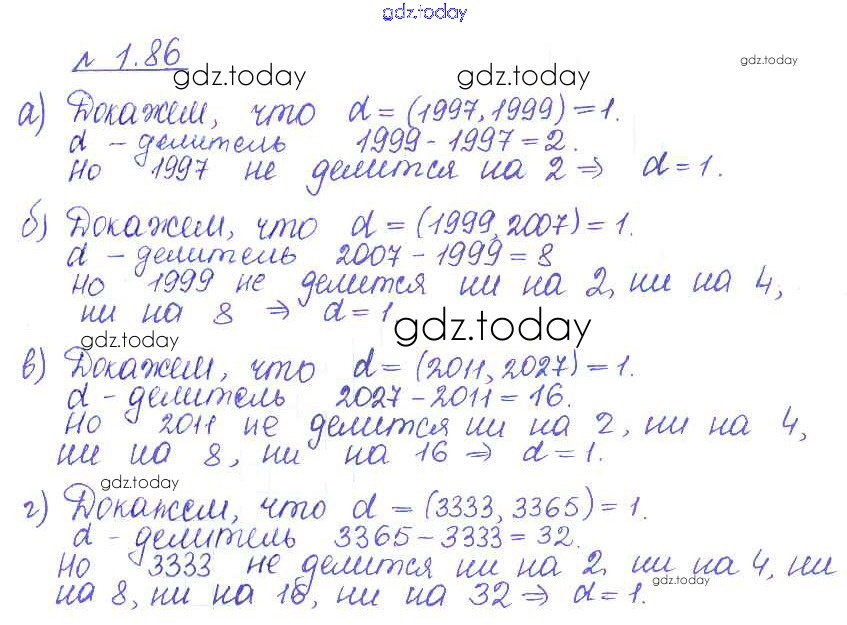 gdz.today
№ 1.86
gdz.today gdz.today gdz.today
а) Докажем, что d = (1997, 1999) = 1.
d – делитель 1999 - 1997 = 2.
Но 1997 не делится на 2 ⇒ d = 1.
б) Докажем, что d = (1999, 2007) = 1.
d – делитель 2007 - 1999 = 8
Но 1999 не делится ни на 2, ни на 4,
ни на 8 ⇒ d = 1
gdz.today
gdz.today
в) Докажем, что d = (2011, 2027) = 1.
d – делитель 2027 - 2011 = 16.
Но 2011 не делится ни на 2, ни на 4,
ни на 8, ни на 16 ⇒ d = 1.
gdz.today
г) Докажем, что d = (3333, 3365) = 1.
d – делитель 3365 - 3333 = 32.
Но 3333 не делится ни на 2, ни на 4, ни
gdz.today
на 8, ни на 16, ни на 32 ⇒ d = 1.